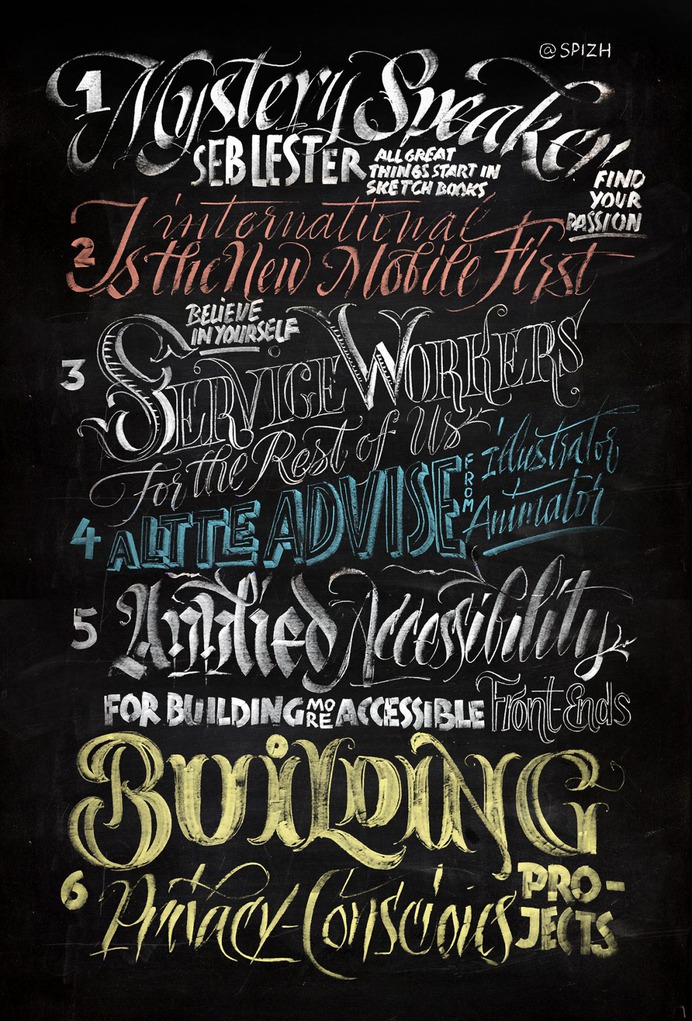 @SPIZH
1 Mystery Speaker!
SEB LESTER
ALL GREAT
THINGS START IN
SKETCH BOOKS
FIND
YOUR
PASSION
2 international
Is the New Mobile First
BELIEVE
IN YOURSELF
3 SERVICE WORKERS
For the Rest of Us
4 A LITTLE ADVISE FROM Idustrator
Animator
5 Applied Accessibility
FOR BUILDING MORE ACCESSIBLE Front-Ends
BUILDING
6 Privacy-Conscious PRO-
JECTS